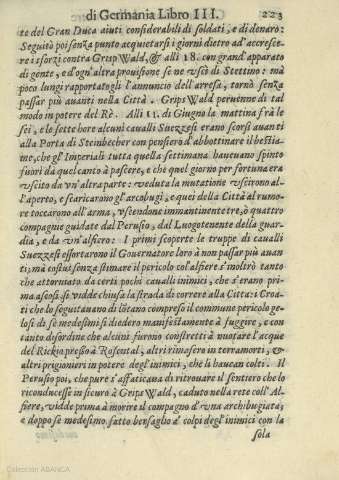 di Germania Libro III. 223
te del Gran Duca aiuti considerabili di soldati, e di denaro:
Seguitò poi senza punto acquietarsi i giorni dietro ad accresce-
re i sforzi contra GripsWald, & alli 18. con grand'apparato
di gente, e d'ogn'altra prouisione se ne vscì di Stettino: mà
poco lungi rapportatogli l'annuncio dell'arresa, tornò senza
passar più auanti nella Città. GripsWald peruenne di tal
modo in potere del Rè. Alli 11. di Giugno la mattina frà le
sei, e le sette hore alcuni caualli Suezzesi erano scorsi auanti
alla Porta di Steinbecher con pensiero d'abbottinare il bestia-
me, che gl'Imperiali tutta quella settimana haueuano spinto
fuori da quel canto à pascere, e che quel giorno per fortuna era
vscito da vn'altra parte: veduta la mutatione vscirono al-
l'aperto, e scaricarono gl'arcobugi, e quei della Città al rumo-
re toccarono all'arma, vscendone immantinente tre, ò quattro
compagnie guidate dal Perusio, dal Luogotenente della guar-
dia, e da vn'alfiero: I primi scoperte le truppe di caualli
Suezzesi essortarono il Gouernatore loro à non passar più auan-
ti; mà costui senza stimare il pericolo col'alfiere s'inoltrò tanto
che attorniato da certi pochi caualli inimici, che s'erano pri-
ma ascosi se vidde chiusa la strada di correre alla Città: i Croa-
ti che lo seguitauano di lōtano compreso il commune pericolo ge-
losi di se medesimi si diedero manifestamente à fuggire, e con
tanto disordine che alcuni furono constretti à nuotare l'acque
del Rickio presso à Rosental, altri rimasero in terra morti, &
altri prigionieri in potere degl'inimici, che li haueuan colti. Il
Perusio poi, che pure s'affaticaua di ritrouare il sentiero che lo
riconducesse in sicuro à GripsWald, caduto nella rete coll'Al-
fiere, vidde prima à morire il compagno d'vna archibugiata;
e doppo se medesimo fatto bersaglio à colpi degl'inimici con la
sola
Colección ABANCA